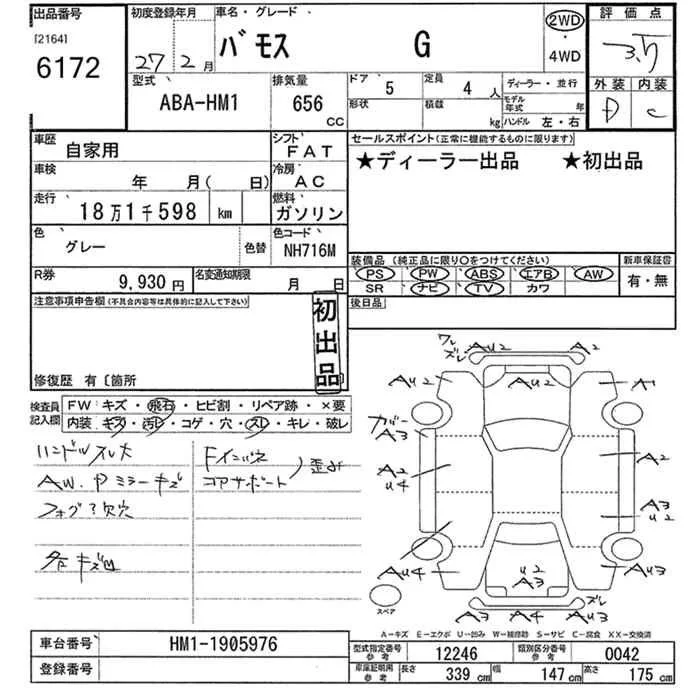 出品番号
[2164]
6172
初度登録年月
27年 2月
車名・グレード
バモス G
2WD
・
4WD
評価点
3.5
外装 内装
D C
型式
ABA-HM1
排気量
656 CC
ドア 5
定員 4 人
形状
積載 kg
ディーラー・並行
モデル年式 年
ハンドル 左・右
車歴
自家用
シフト
FAT
セールスポイント(正常に機能するものに限ります)
★ディーラー出品 ★初出品
車検
年 月( 日)
冷房
AC
走行
18万1千598 km
燃料
ガソリン
色
グレー
色替
色コード
NH716M
装備品 (純正品に限り○をつけてください)
PS PW ABS エアB AW
SR ナビ TV カワ
新車保証書
有・無
R券
9,930円
名変通知期限
月 日
後日品
注意事項申告欄(不具合内容等は具体的に記入して下さい)
初出品
修復歴 有 〔箇所
検査員記入欄
FW キズ・飛石・ヒビ割・リペア跡・×要
内装 キズ・汚レ・コゲ・穴・スレ・キレ・破レ
ハンドルスレ大
AW.Pミラーキズ
フォグ?欠穴
Fインパネ
コアサポート
歪み
ワレ
ズレ AU2 A2
AU2 AU2 A1
カバー
A3
A2
U4
A2
A3
U2
AU4 U2
A3 AU3
ズレ
A3 A4 AU3
スペア
A-キズ E-エクボ U-凹み W-補修跡 S-サビ C-腐食 XX-交換済
車台番号
HM1-1905976
登録番号
型式指定番号
参考
12246
類別区分番号
参考
0042
車庫証明用
参考
長さ 339 cm
幅 147 cm
高さ 175 cm